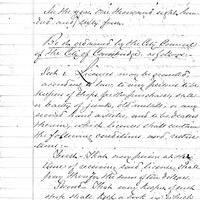 In the year one thousand eight hun-
dred and sixty four.
Be it ordained by the City Council
of the City of Cambridge as follows:
Sect. 1. Licenses may be granted,
according to law to any person to be
keepers of shops for the purchase, sale
or barter of junk, old metals, or any
second hand articles, and to be dealers
therein, which licenses shall contain
the following conditions and restric-
tions:—
First—That every person at the
time of receiving said license, shall
pay therefor the sum of two dollars.
Second—That every keeper of such
shop shall keep a book in which